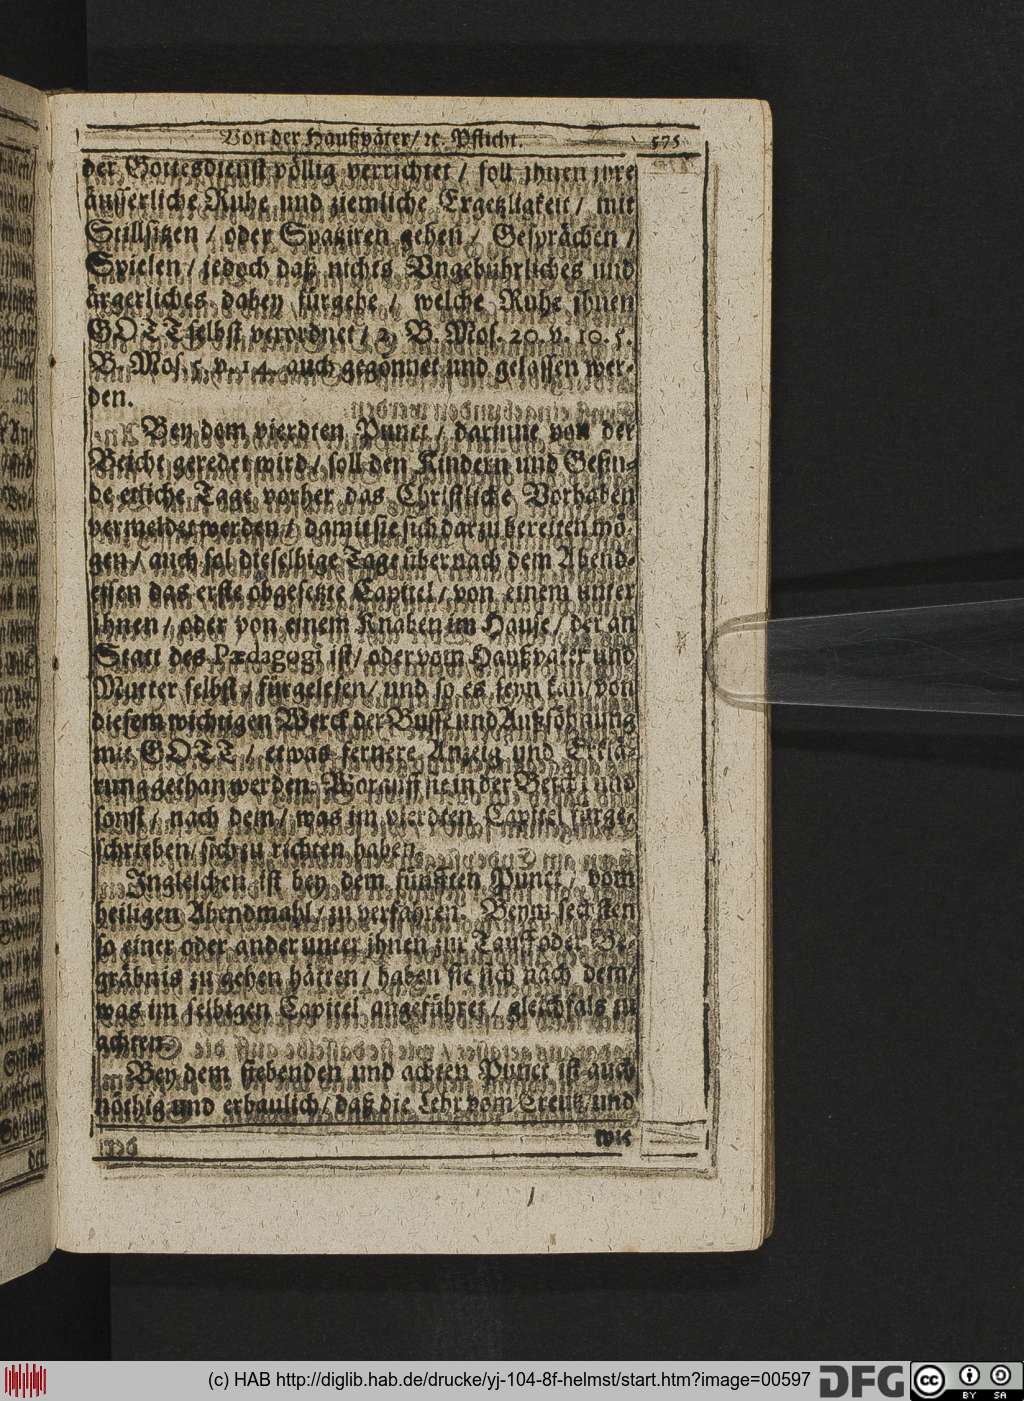 Von der Haußväter/ ꝛc. Pflicht. 575
der Gottesdienst völlig verrichtet / soll ihnen ihre
äusserliche Ruhe und ziemliche Ergetzligkeit / mit
Stillsitzen / oder Spatziren gehen / Gesprächen /
Spielen / jedoch daß nichts Vngebührliches und
ärgerliches dabey fürgehe / welche Ruhe ihnen
GOTT selbst verordnet / 2. B. Mos. 20. v. 10. 5.
B. Mos. 5. v. 14. auch gegönnet und gelassen wer-
den.
Bey dem vierdten Punct / darinne von der
Beicht geredet wird / soll den Kindern und Gesin-
de etliche Tage vorher das Christliche Vorhaben
vermeldet werden / damit sie sich darzu bereiten mö-
gen / auch sol dieselbige Tage über nach dem Abend-
essen das erste obgesetzte Capitel / von einem unter
ihnen / oder von einem Knaben im Hause / der an
Statt des Pædagogi ist / oder vom Haußvater und
Mutter selbst / fürgelesen / und so es seyn kan / von
diesem wichtigen Werck der Busse und Außsöhnung
mit GOTT / etwas fernere Anzeig und Erklä-
rung gethan werden. Worauff sie in der Beicht und
sonst / nach dem / was im vierdten Capitel fürge-
schrieben / sich zu richten haben.
Ingleichen ist bey dem fünfften Punct / vom
heiligen Abendmahl / zu verfahren. Beym sechsten
so einer oder ander unter ihnen zur Tauff oder Be-
gräbnis zu gehen hätten / haben sie sich nach dem /
was im selbigen Capitel angeführet / gleichfals zu
achten.
Bey dem siebenden und achten Punct ist auch
nöthig und erbaulich / daß die Lehr vom Creutz / und
wie
der
(c) HAB http://diglib.hab.de/drucke/yj-104-8f-helmst/start.htm?image=00597
DFG
cc BY SA